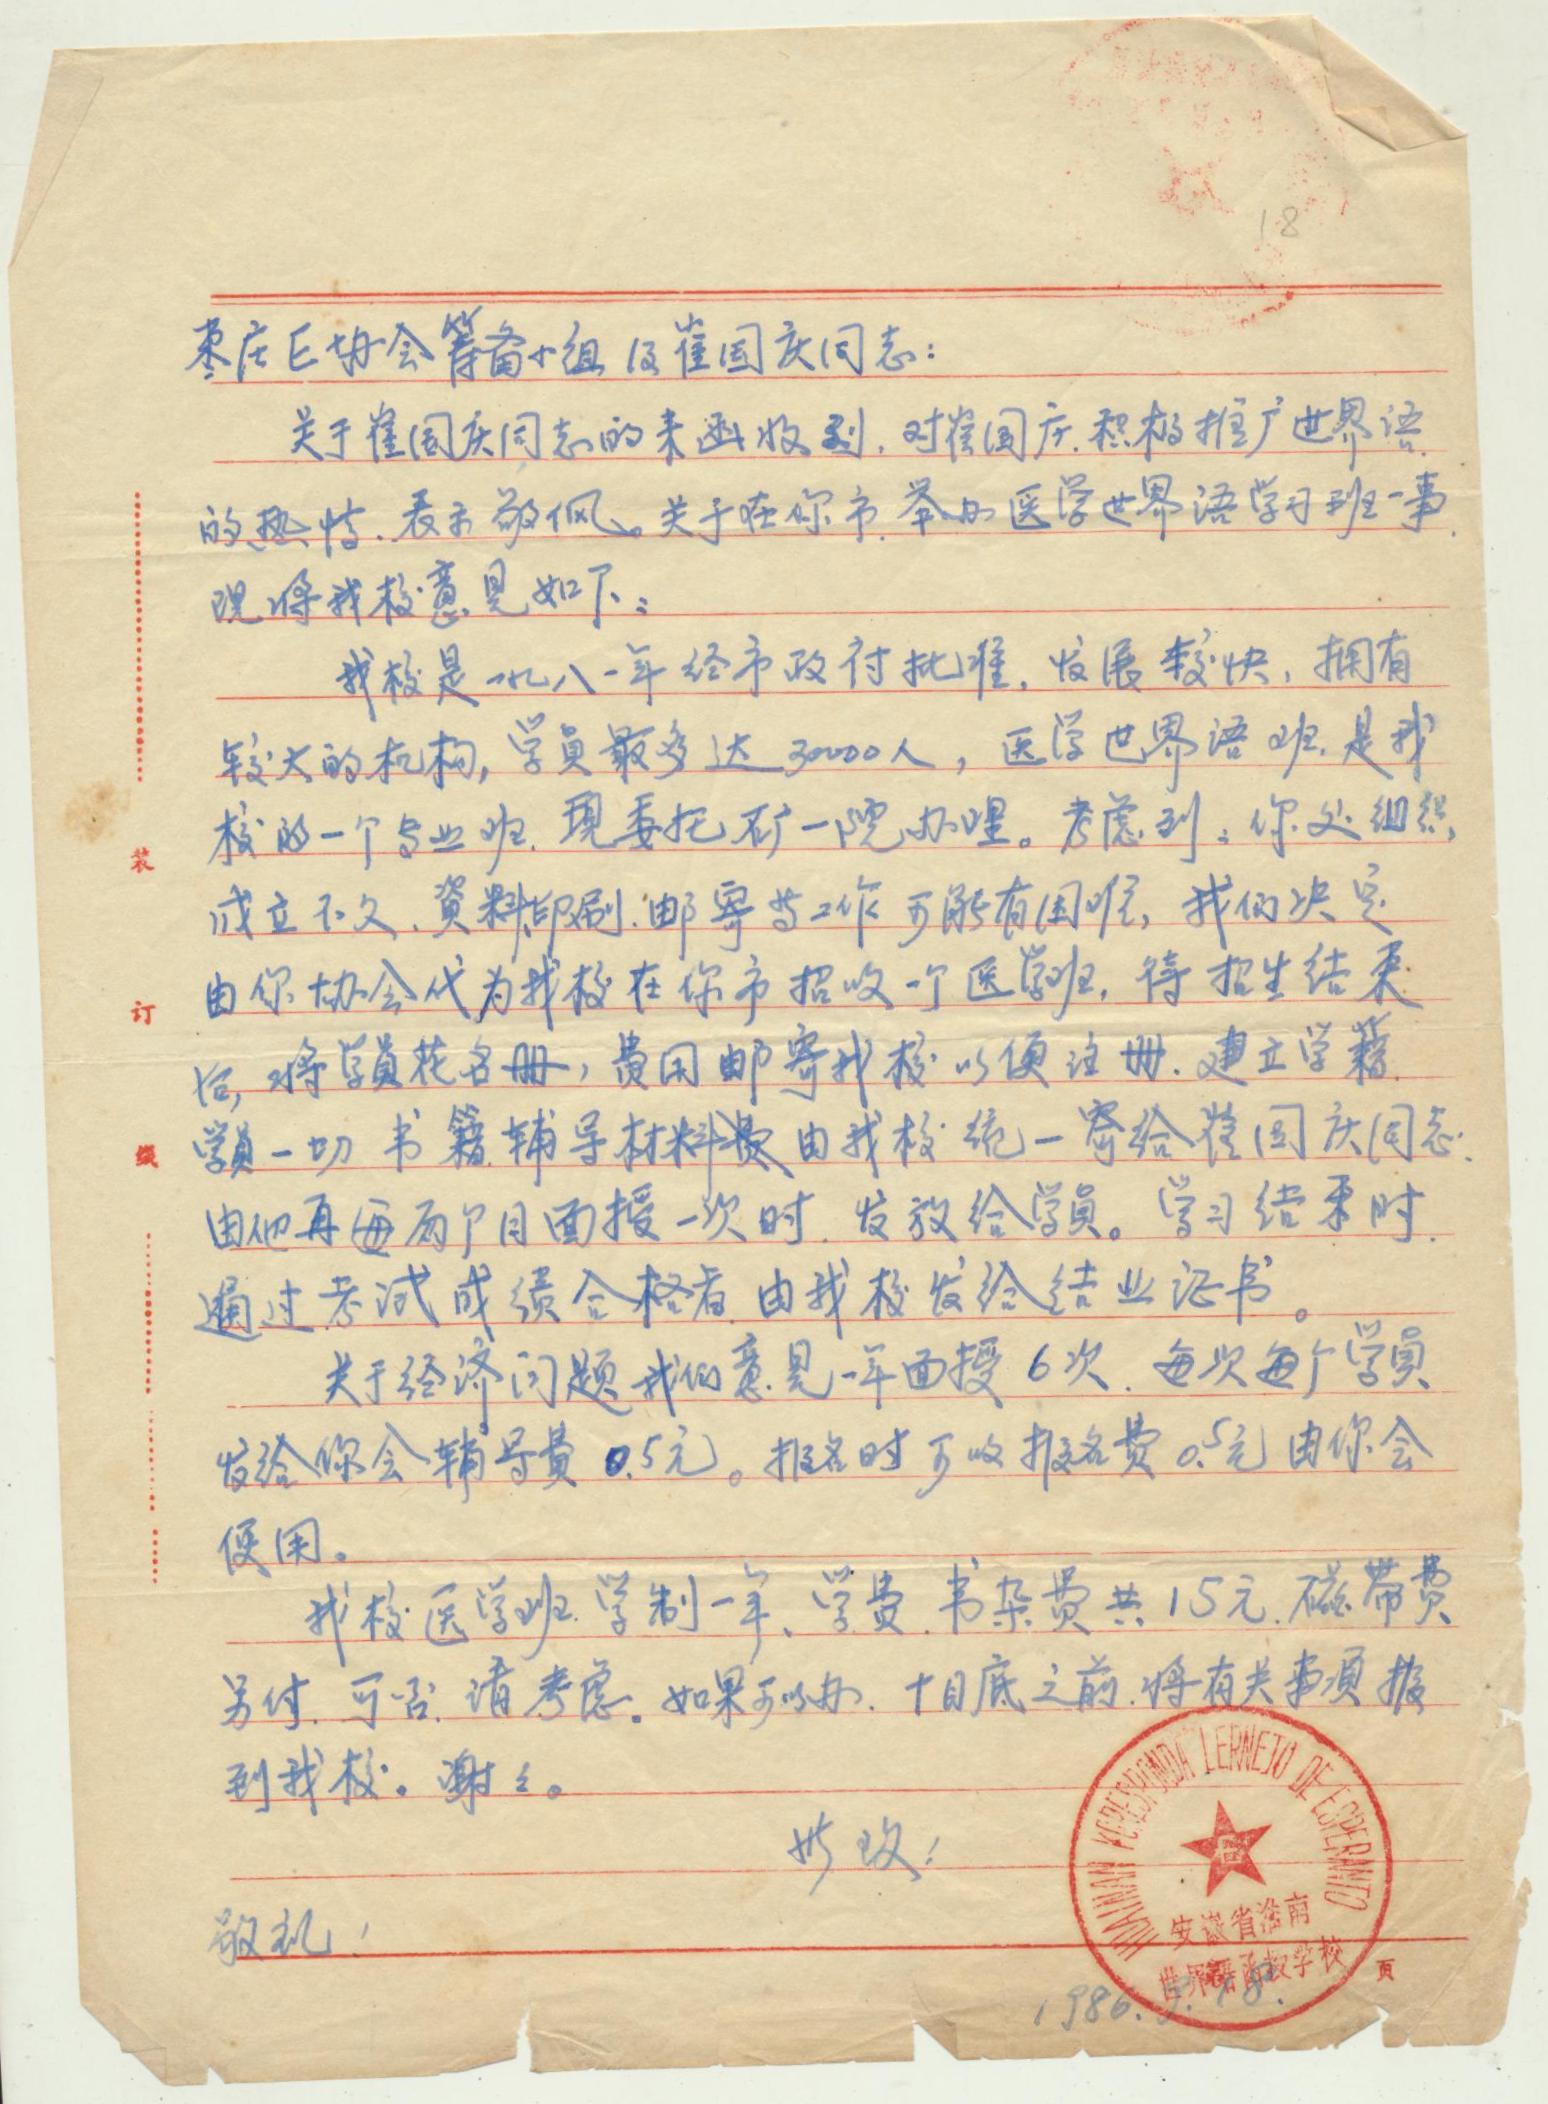 18
枣庄E协会筹备小组及崔国庆同志：
关于崔国庆同志的来函收到，对崔国庆积极推广世界语
的热情，表示敬佩。关于在你市举办医学世界语学习班一事，
现将我校意见如下：
我校是一九八一年经市政府批准，发展较快，拥有
较大的机构，学员最多达30000人，医学世界语班是我
校的一个专业班，现委托矿一院办理。考虑到：你处组织
成立不久，资料印刷、邮寄等工作可能有困难，我们决定
由你协会代为我校在你市招收一个医学班，待招生结束
后，将学员花名册，费用邮寄我校以便注册、建立学籍，
学员一切书籍辅导材料费由我校统一寄给崔国庆同志，
由他再每两个月面授一次时，发放给学员。学习结束时，
通过考试成绩合格者，由我校发给结业证书。
关于经济问题我们意见一年面授6次，每次每个学员
发给你会辅导费0.5元。报名时可收报名费0.5元由你会
使用。
我校医学班学制一年、学费、书杂费共15元，磁带费
另付，可否，请考虑。如果可以办，十月底之前将有关事项报
到我校。谢々。
此致！
敬礼！
HUAINAN KORESPONDA LERNEJO DE ESPERANTO
安徽省淮南
世界语函授学校
1986.9.18.
页
装
订
线